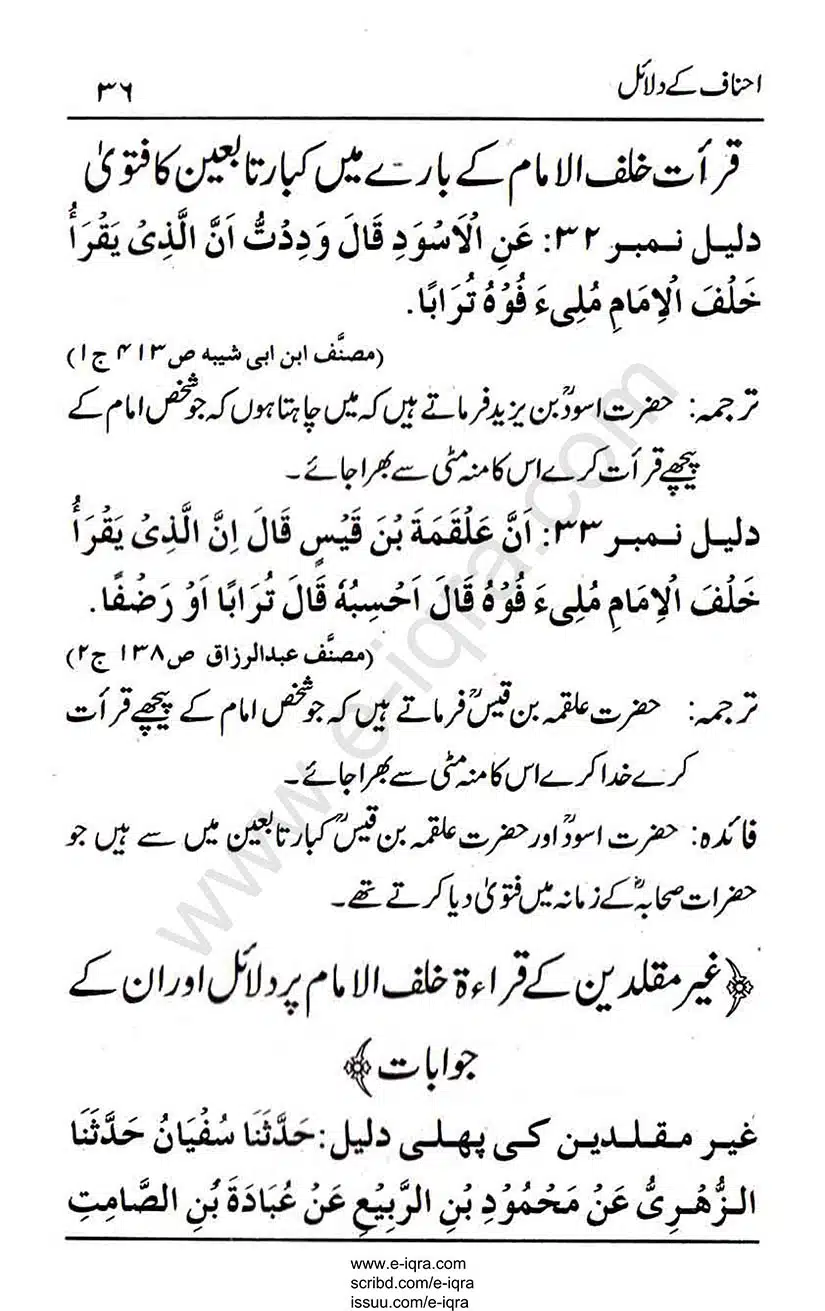 احناف کے دلائل ۳۶
قرأت خلف الامام کے بارے میں کبار تابعین کا فتویٰ
دلیل نمبر ۳۲: عَنِ الْاَسْوَدِ قَالَ وَدِدْتُّ اَنَّ الَّذِیْ یَقْرَأُ
خَلْفَ الْاِمَامِ مُلِیءَ فُوْهُ تُرَابًا.
(مصنَّف ابن ابی شیبه ص ۴۱۳ ج ۱)
ترجمہ: حضرت اسودؒ بن یزید فرماتے ہیں کہ میں چاہتا ہوں کہ جو شخص امام کے
پیچھے قرأت کرے اس کا منہ مٹی سے بھرا جائے۔
دلیل نمبر ۳۳: اَنَّ عَلْقَمَةَ بْنَ قَیْسٍ قَالَ اِنَّ الَّذِیْ یَقْرَأُ
خَلْفَ الْاِمَامِ مُلِیءَ فُوْهُ قَالَ اَحْسِبُهٗ قَالَ تُرَابًا اَوْ رَضْفًا.
(مصنَّف عبدالرزاق ص ۱۳۸ ج ۲)
ترجمہ: حضرت علقمہ بن قیسؒ فرماتے ہیں کہ جو شخص امام کے پیچھے قرأت
کرے خدا کرے اس کا منہ مٹی سے بھرا جائے۔
فائدہ: حضرت اسودؒ اور حضرت علقمہ بن قیسؒ کبار تابعین میں سے ہیں جو
حضرات صحابہؓ کے زمانہ میں فتویٰ دیا کرتے تھے۔
﴿غیر مقلدین کے قراءۃ خلف الامام پر دلائل اور ان کے
جوابات﴾
غیر مقلدین کی پہلی دلیل: حَدَّثَنَا سُفْیَانُ حَدَّثَنَا
الزُّهْرِیُّ عَنْ مَحْمُوْدِ بْنِ الرَّبِیْعِ عَنْ عُبَادَةَ بْنِ الصَّامِتِ
www.e-iqra.com
www.e-iqra.com
scribd.com/e-iqra
issuu.com/e-iqra